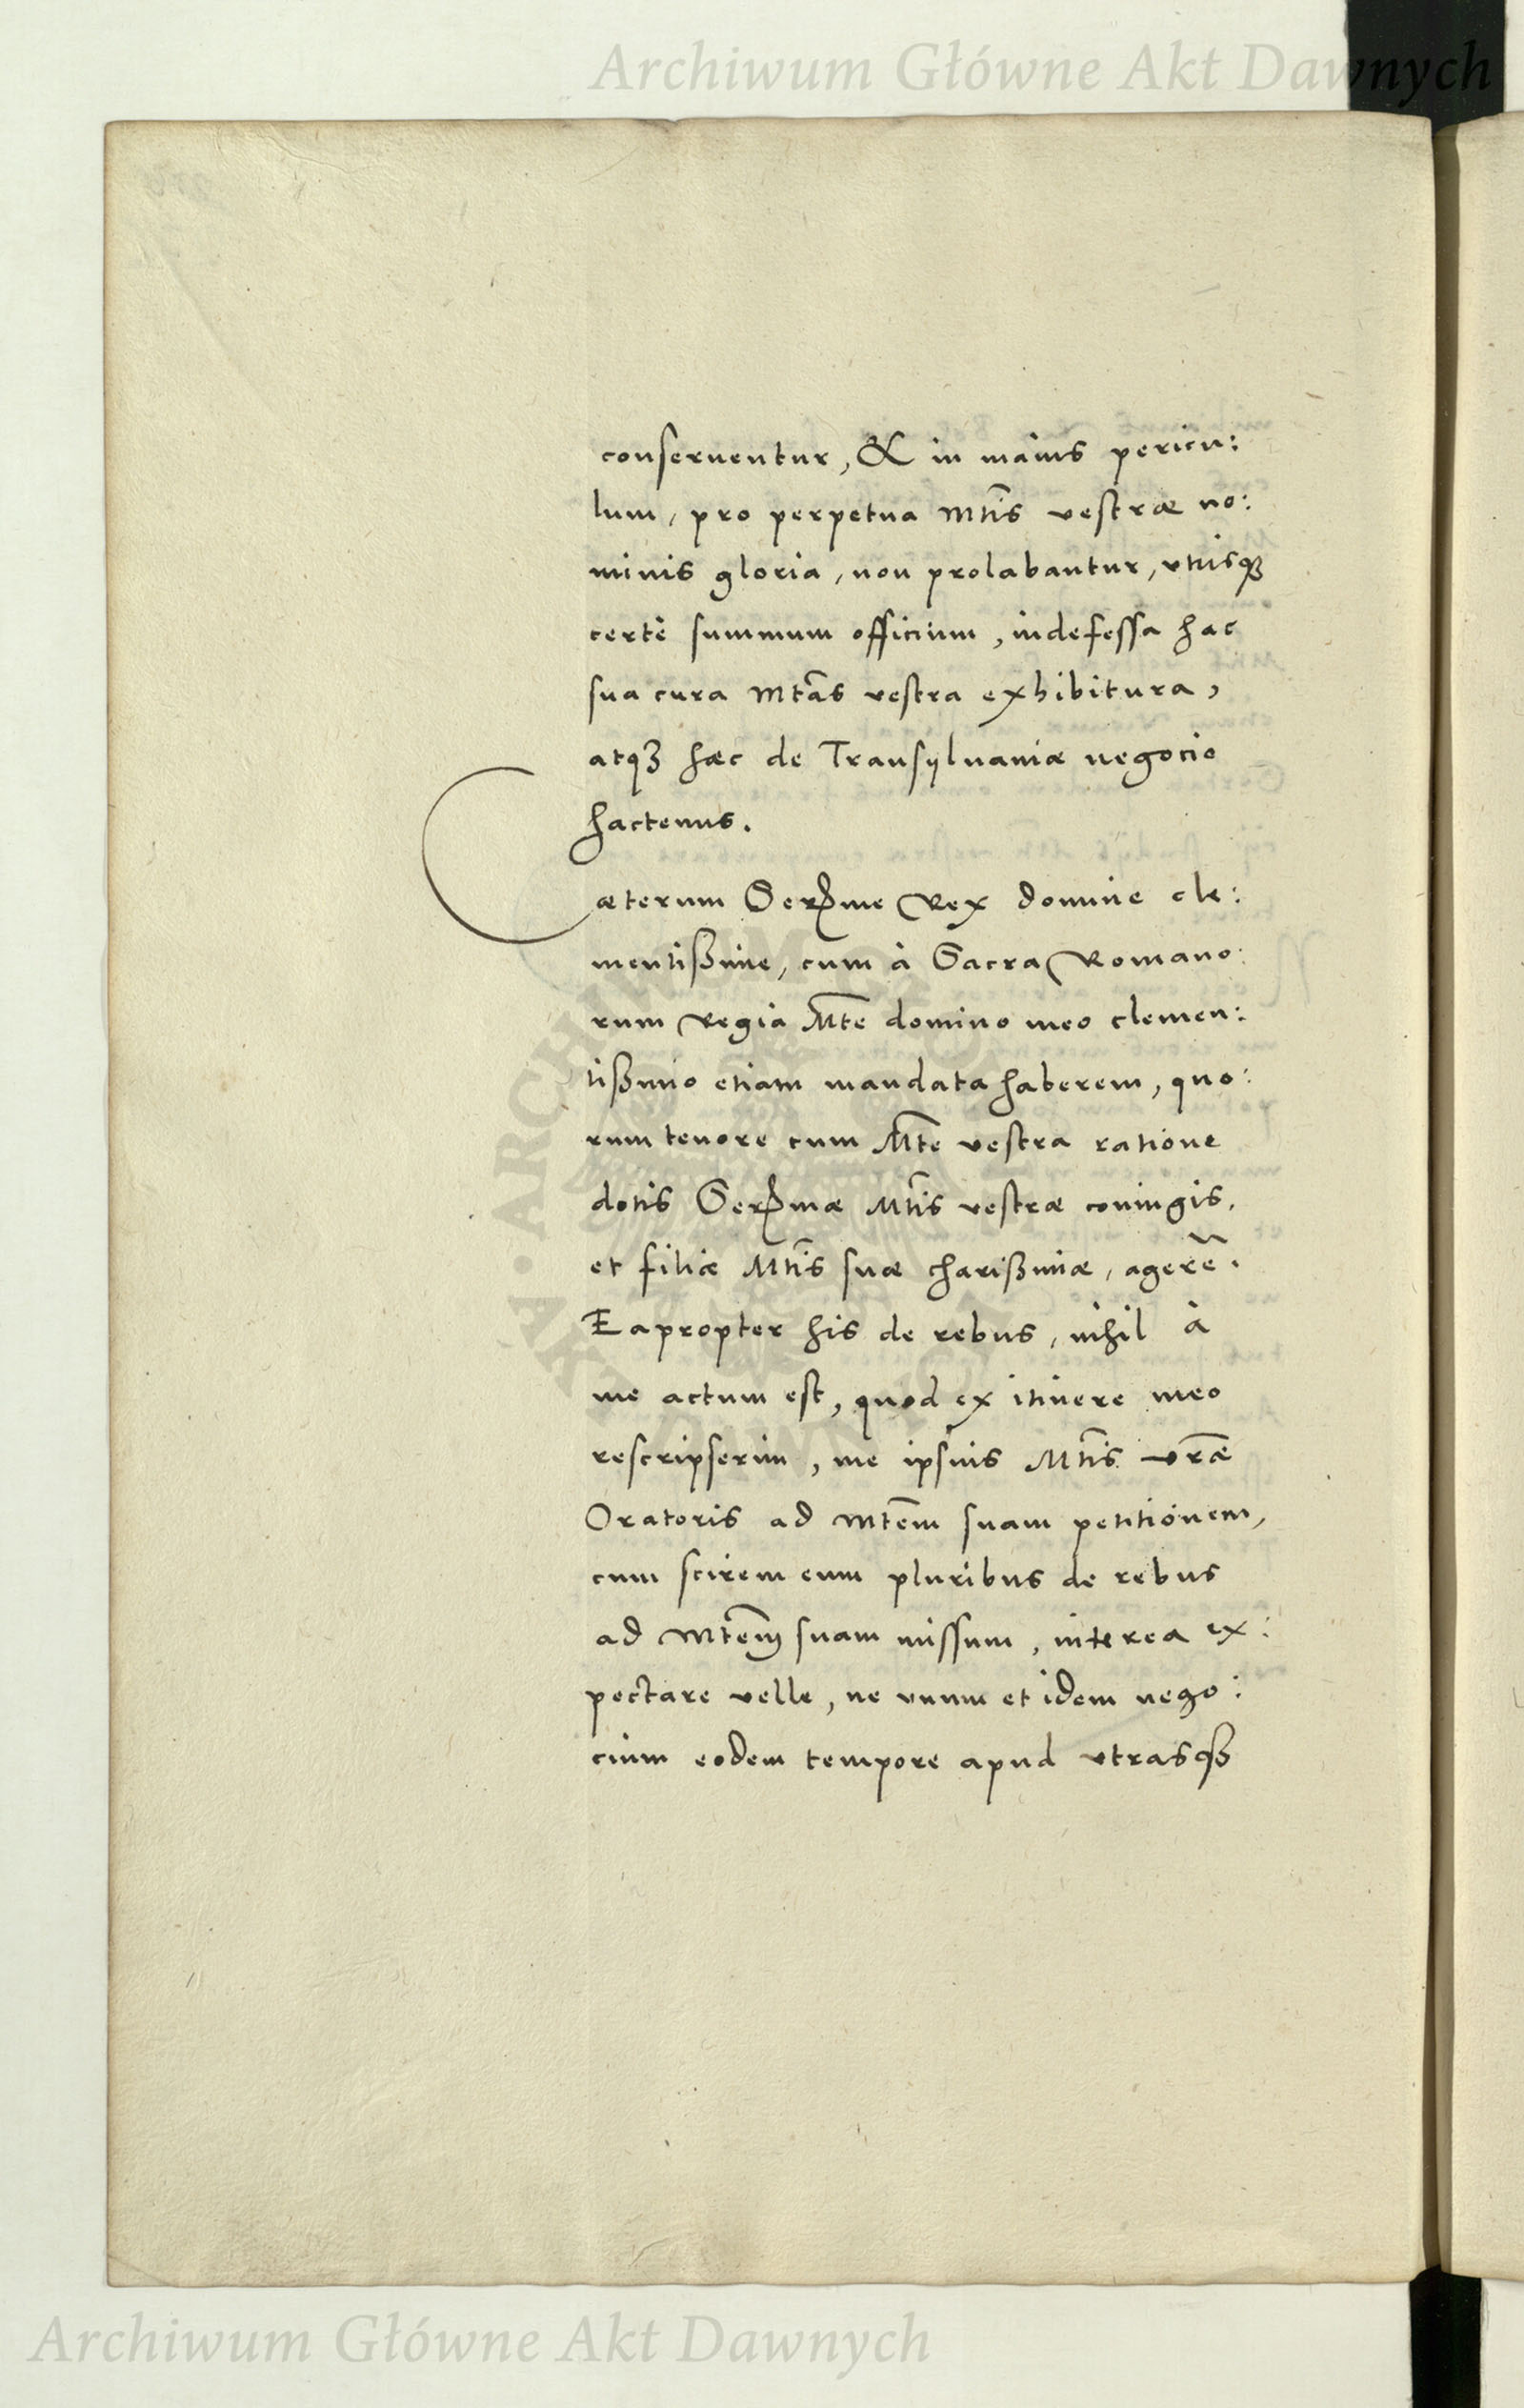 Archiwum Główne Akt Dawnych
conseruentur, & in maius pericu:
lum, pro perpetua Mtis vestræ no:
minis gloria, non prolabantur, vtrisq3
certè summum officium, indefessa hac
sua cura Mtas vestra exhibitura,
atq3 hæc de Transylvaniæ negocio
hactenus.
Cæterum Serme Rex domine cle:
mentißime, cum à Sacra Romano:
rum Regia Mte domino meo clemen:
tißimo etiam mandata haberem, quo:
rum tenore cum Mte vestra ratione
dotis Sermæ Mtis vestræ coniugis,
et filiæ Mtis suæ charißimæ, agerē.
Eapropter his de rebus, nihil à
me actum est, quod ex itinere meo
rescripserim, me ipsius Mtis vræ
Oratoris ad Mtem suam petitionem,
cum scirem eum pluribus de rebus
ad Mtem suam missum, interea ex:
pectare velle, ne vnum et idem nego:
cium eodem tempore apud vtrasq3
Archiwum Główne Akt Dawnych